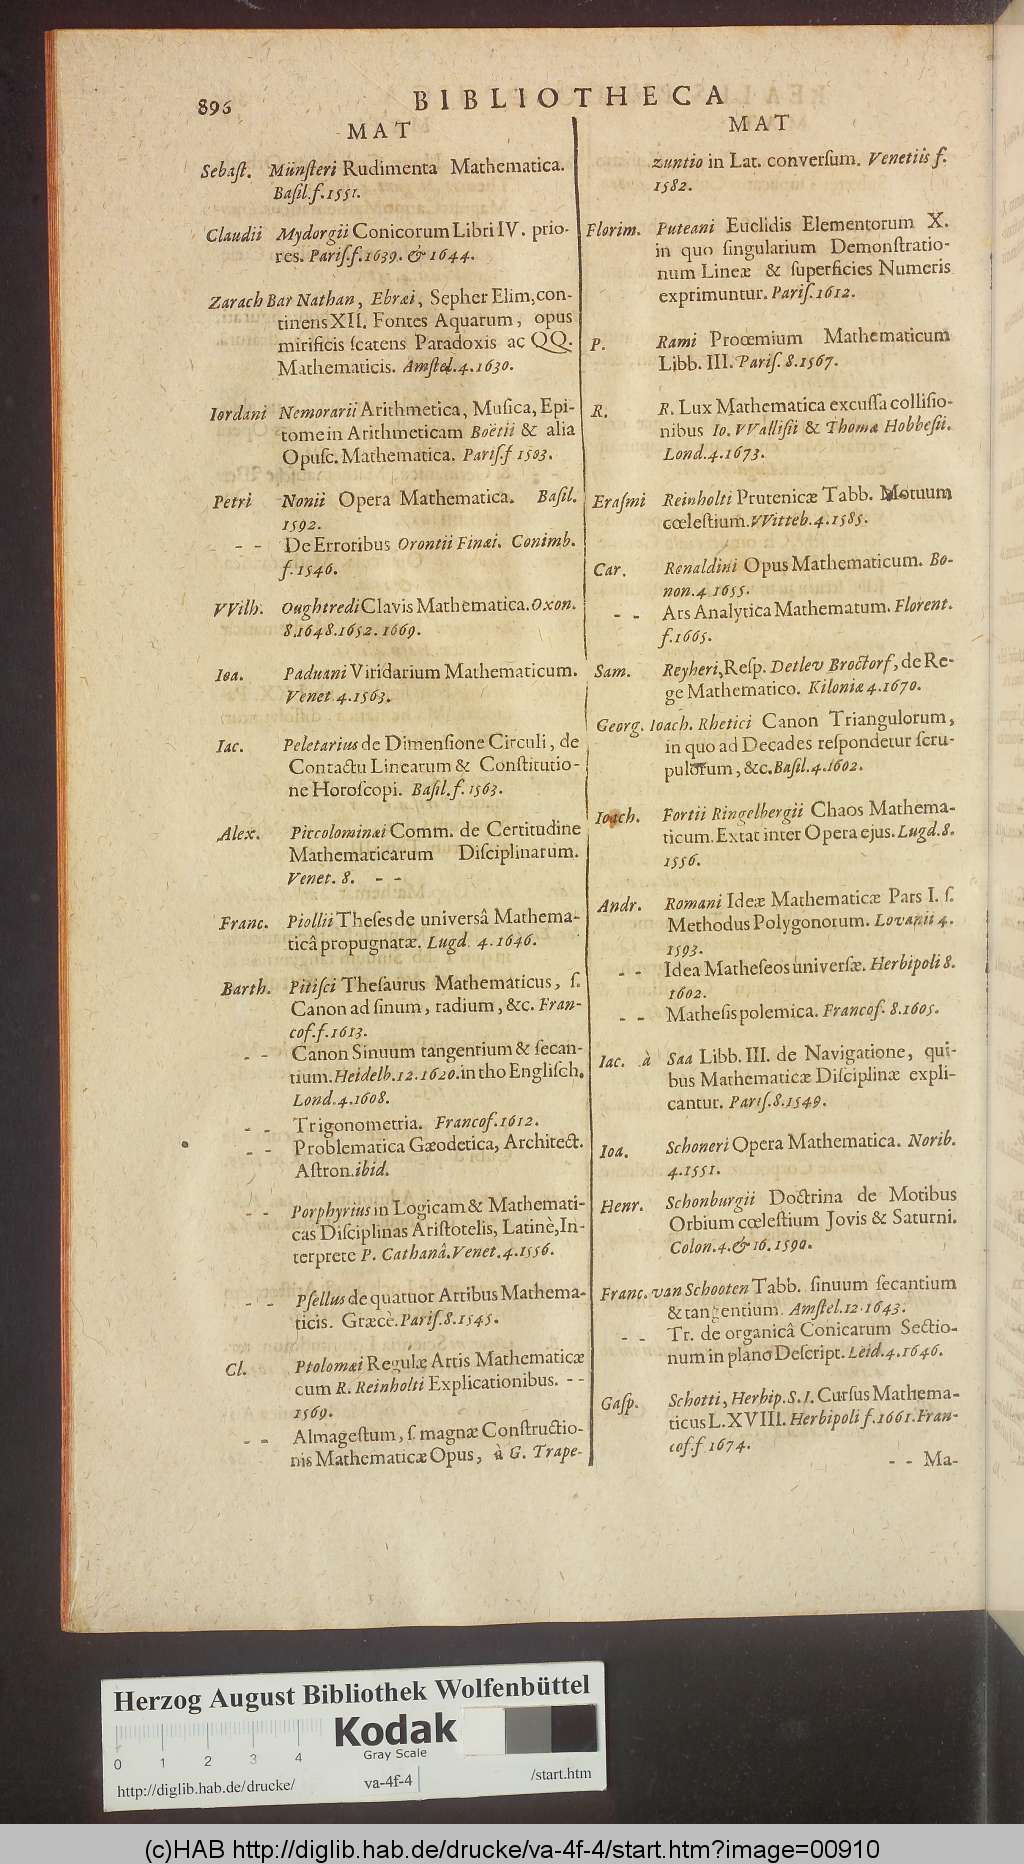 896
BIBLIOTHECA
MAT
Sebaſt. Münſteri Rudimenta Mathematica.
Baſil.f.1551.
Claudii Mydorgii Conicorum Libri IV. prio-
res. Pariſ.f.1639. & 1644.
Zarach Bar Nathan, Ebræi, Sepher Elim, con-
tinens XII. Fontes Aquarum, opus
mirificis ſcatens Paradoxis ac QQ.
Mathematicis. Amſtel.4.1630.
Iordani Nemorarii Arithmetica, Muſica, Epi-
tome in Arithmeticam Boëtii & alia
Opuſc. Mathematica. Pariſ.f 1503.
Petri Nonii Opera Mathematica. Baſil.
1592.
- - De Erroribus Orontii Finæi. Conimb.
f.1546.
VVilh. Oughtredi Clavis Mathematica. Oxon.
8.1648.1652.1669.
Ioa. Paduani Viridarium Mathematicum.
Venet 4.1563.
Iac. Peletarius de Dimenſione Circuli, de
Contactu Linearum & Conſtitutio-
ne Horoſcopi. Baſil.f.1563.
Alex. Piccolominæi Comm. de Certitudine
Mathematicarum Diſciplinarum.
Venet. 8. - -
Franc. Piollii Theſes de universâ Mathema-
ticâ propugnatæ. Lugd 4.1646.
Barth. Pitiſci Theſaurus Mathematicus, ſ.
Canon ad ſinum, radium, &c. Fran-
cof.f.1613.
- - Canon Sinuum tangentium & ſecan-
tium. Heidelb.12.1620. in tho Engliſch.
Lond.4.1608.
- - Trigonometria. Francof.1612.
- - Problematica Gæodetica, Architect.
Aſtron. ibid.
- - Porphyrius in Logicam & Mathemati-
cas Diſciplinas Ariſtotelis, Latinè, In-
terprete P. Cathanâ. Venet.4.1556.
- - Pſellus de quatuor Artibus Mathema-
ticis. Græcè. Pariſ.8.1545.
Cl. Ptolomæi Regulæ Artis Mathematicæ
cum R. Reinholti Explicationibus. - -
1569.
- - Almageſtum, ſ. magnæ Conſtructio-
nis Mathematicæ Opus, à G. Trape-
MAT
zuntio in Lat. converſum. Venetiis f.
1582.
Florim. Puteani Euclidis Elementorum X.
in quo ſingularium Demonſtratio-
num Lineæ & ſuperficies Numeris
exprimuntur. Pariſ.1612.
P. Rami Proœmium Mathematicum
Libb. III. Pariſ. 8.1567.
R. R. Lux Mathematica excuſſa colliſio-
nibus Io. VValliſii & Thomæ Hobbeſii.
Lond.4.1673.
Eraſmi Reinholti Prutenicæ Tabb. Motuum
cœleſtium. VVitteb.4.1585.
Car. Renaldini Opus Mathematicum. Bo-
non.4 1655.
- - Ars Analytica Mathematum. Florent.
f.1665.
Sam. Reyheri, Reſp. Detlev Broctorf, de Re-
ge Mathematico. Kiloniæ 4.1670.
Georg. Ioach. Rhetici Canon Triangulorum,
in quo ad Decades reſpondetur ſcru-
pulorum, &c. Baſil.4.1602.
Ioach. Fortii Ringelbergii Chaos Mathema-
ticum. Extat inter Opera ejus. Lugd.8.
1556.
Andr. Romani Ideæ Mathematicæ Pars I. ſ.
Methodus Polygonorum. Lovanii 4.
1593.
- - Idea Matheſeos univerſæ. Herbipoli 8.
1602.
- - Matheſis polemica. Francof. 8.1605.
Iac. à Saa Libb. III. de Navigatione, qui-
bus Mathematicæ Diſciplinæ expli-
cantur. Pariſ.8.1549.
Ioa. Schoneri Opera Mathematica. Norib.
4.1551.
Henr. Schonburgii Doctrina de Motibus
Orbium cœleſtium Jovis & Saturni.
Colon.4.& 16.1590.
Franc. van Schooten Tabb. ſinuum ſecantium
& tangentium. Amſtel.12.1643.
- - Tr. de organicâ Conicarum Sectio-
num in plano Deſcript. Leid.4.1646.
Gaſp. Schotti, Herbip. S. I. Curſus Mathema-
ticus L. XVIII. Herbipoli f.1661. Fran-
cof.f 1674.
- - Ma-
Herzog August Bibliothek Wolfenbüttel
Kodak
Gray Scale
0 1 2 3 4
http://diglib.hab.de/drucke/ va-4f-4 /start.htm
(c)HAB http://diglib.hab.de/drucke/va-4f-4/start.htm?image=00910